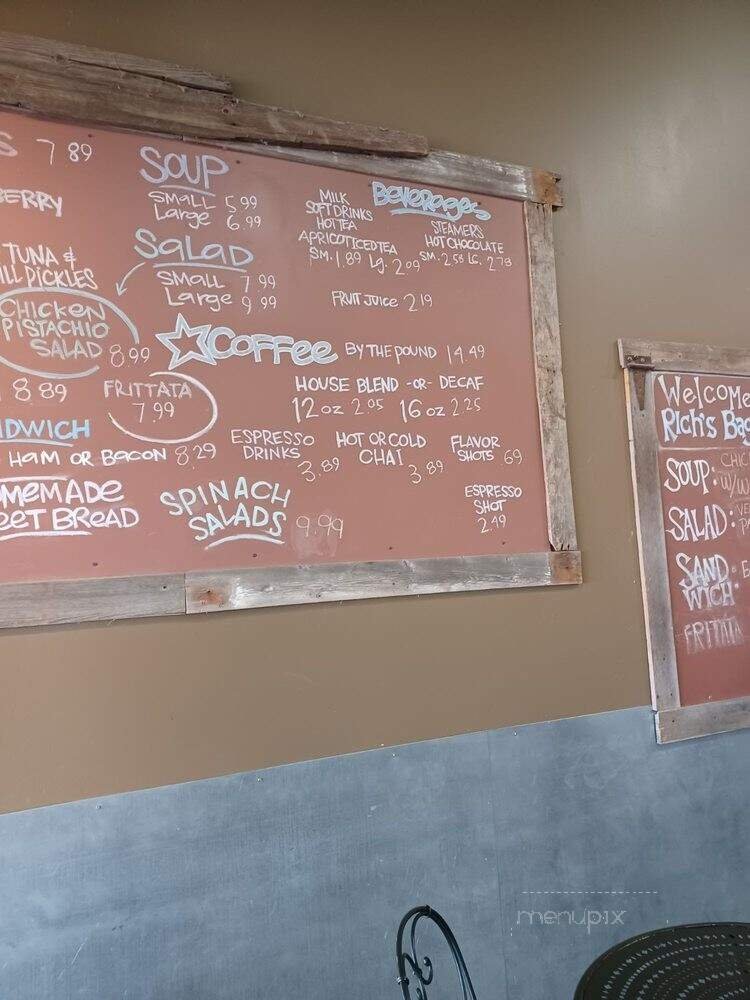 7 89
BERRY
TUNA &
ILL PICKLES
CHICKEN
PISTACHIO
SALAD 8.99
8 89
FRITTATA
7.99
DWICH
HAM OR BACON 8.29
MEMADE
EET BREAD
SOUP
SMALL 5.99
Large 6.99
Salad
SMALL 7.99
Large 9.99
Beverages
MILK
SOFT DRINKS
HOT TEA
APRICOT ICED TEA
SM. 1.89 Lg. 2.09
STEAMERS
HOT CHOCOLATE
SM. 2.58 LG. 2.78
FRUIT JUICE 2.19
Coffee BY THE POUND 14.49
HOUSE BLEND -OR- DECAF
12 oz 2.05 16 oz 2.25
ESPRESSO
DRINKS 3.89
HOT OR COLD
CHAI 3.89
FLAVOR
SHOTS .69
SPINACH
SALADS 9.99
ESPRESSO
SHOT
2.49
Welcome
Rich's Bag
SOUP: CHIC
W/W
SALAD:
SAND
WICH:
FRITTATA
menupix